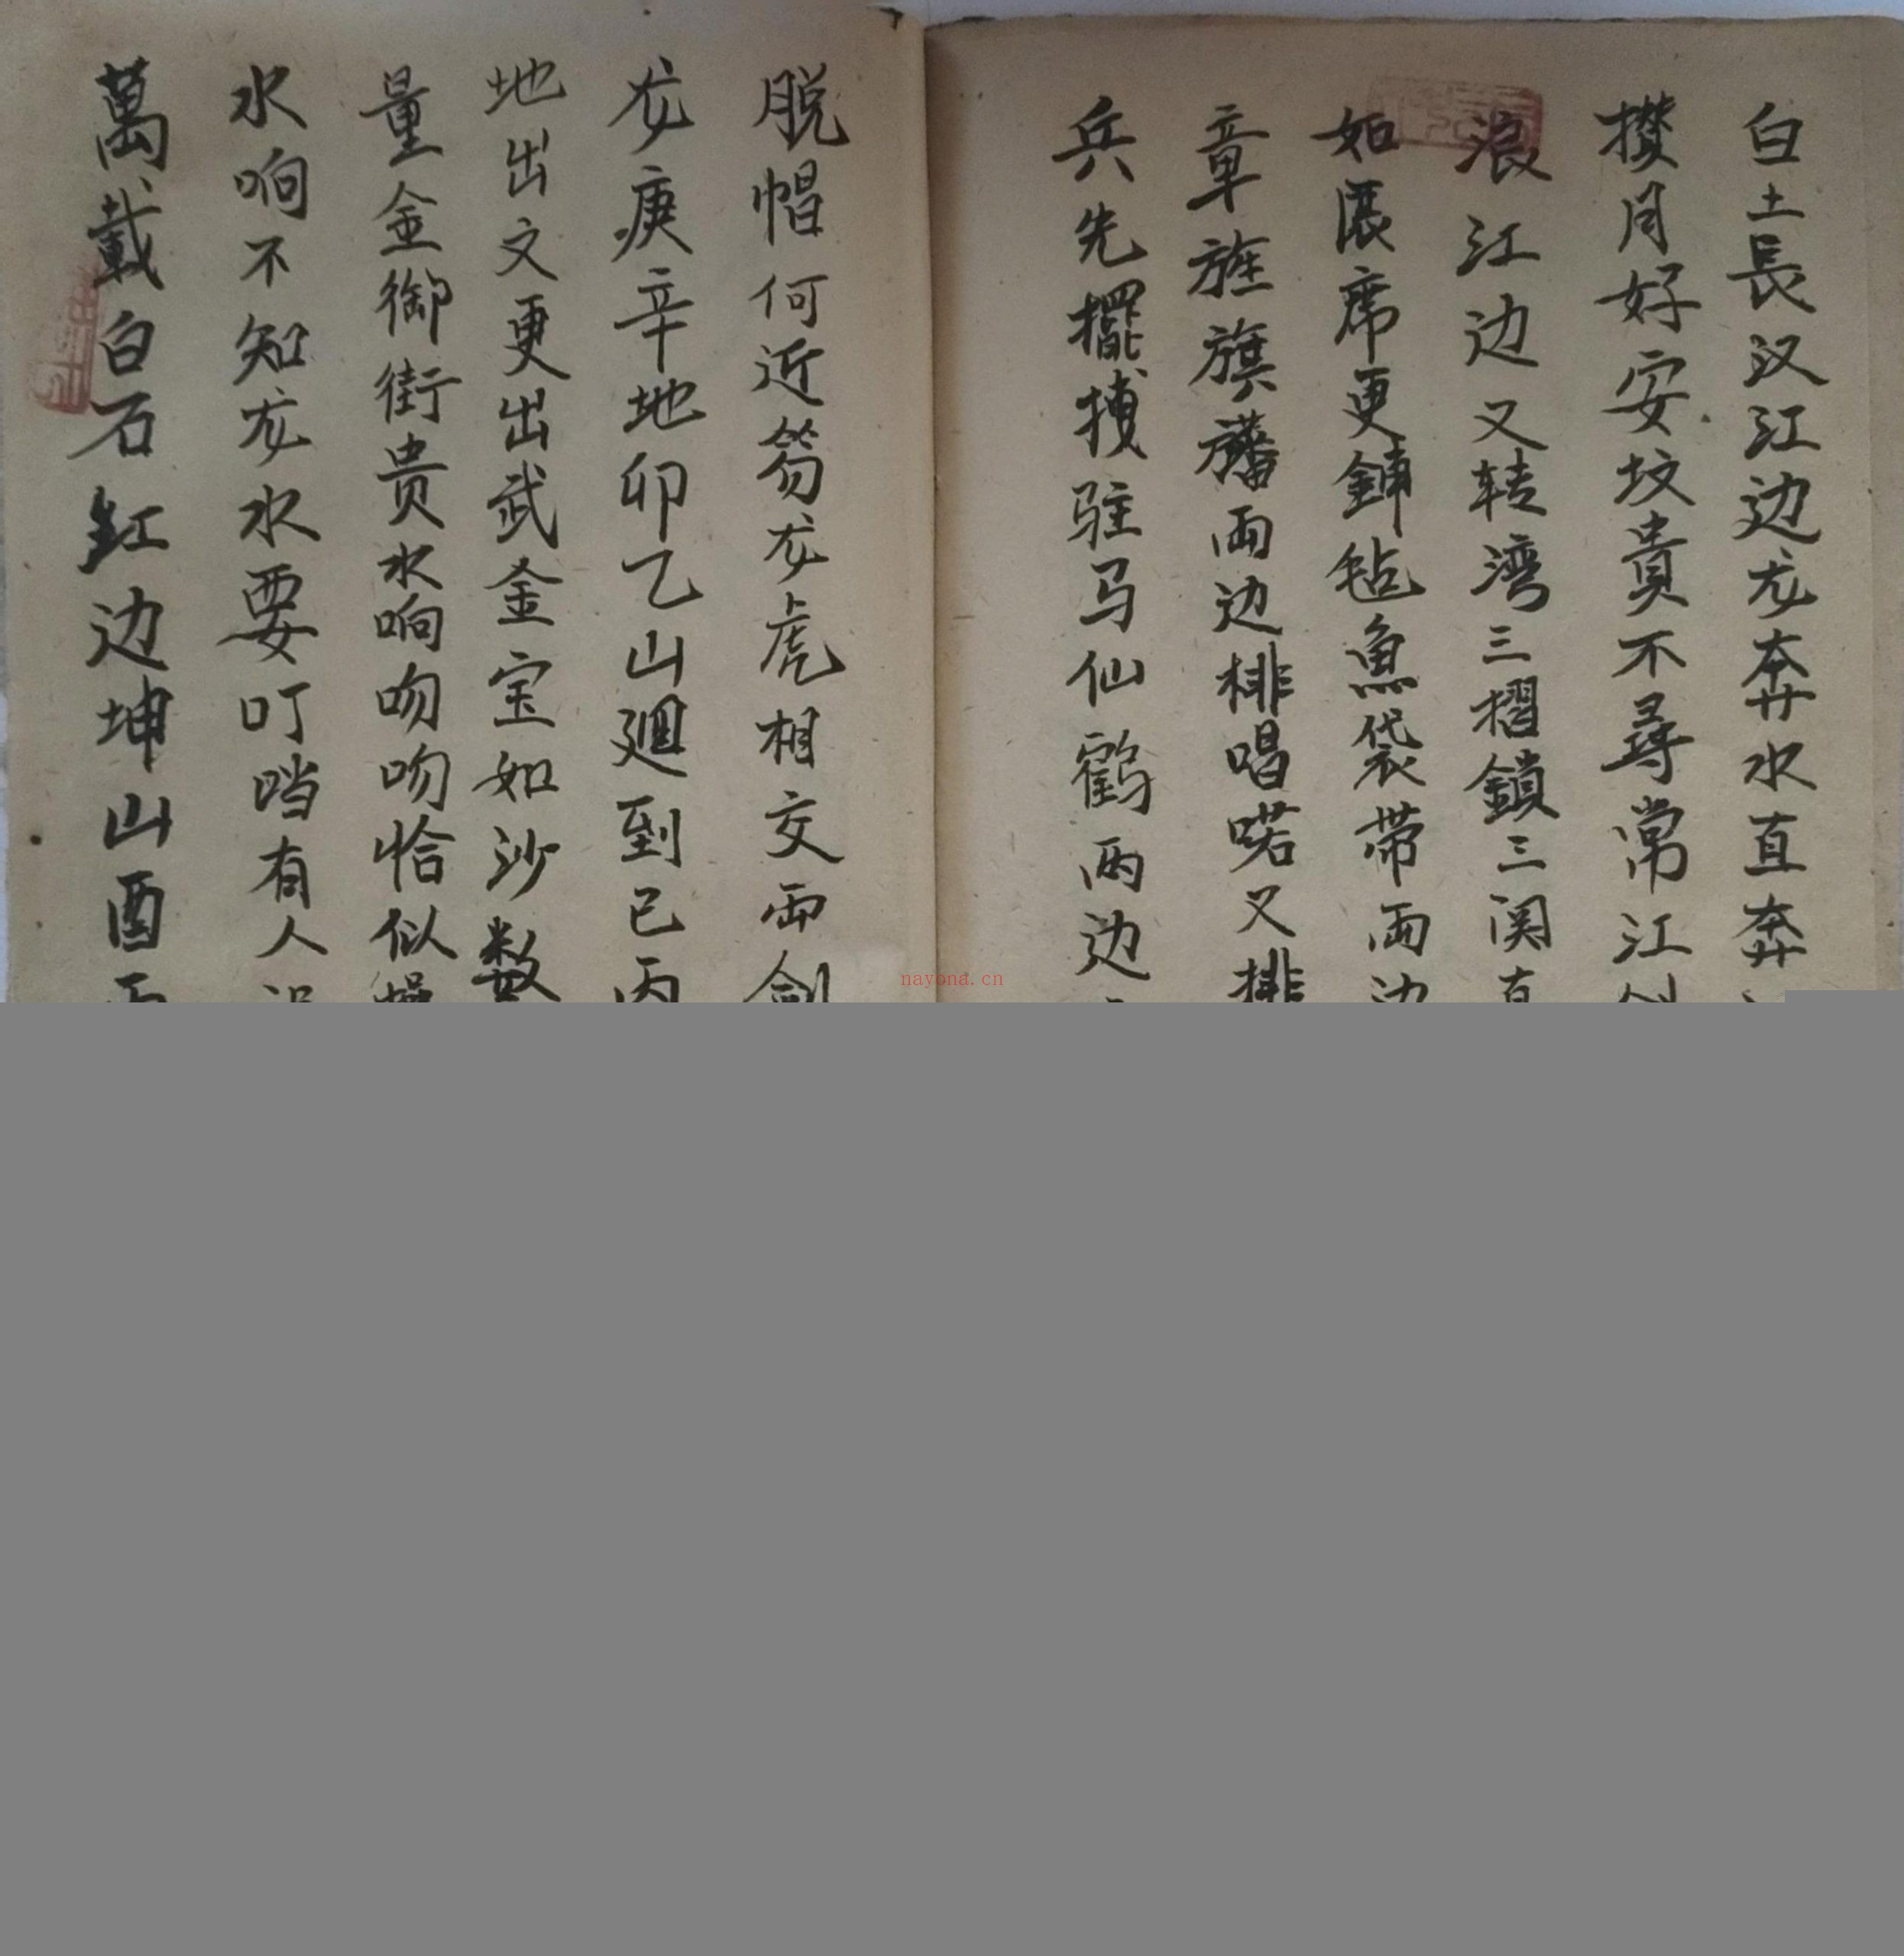 白土長汉江边龙奔水直奔
攒月好安坟貴不尋常江
浪江边又转湾三摺鎖三関直
如展席更鋪毡魚袋带両边
章旌旗旛両边排唱喏又排
兵先擺驻马仙鹤两边
脱帽何近笏龙虎相交両劍
龙庚辛地卯乙山廻到巳丙
地出文更出武金宝如沙数
量金御街贵水响吻吻恰似
水响不知龙水要叮噹有人
萬載白石缸边坤山酉
nayona.cn